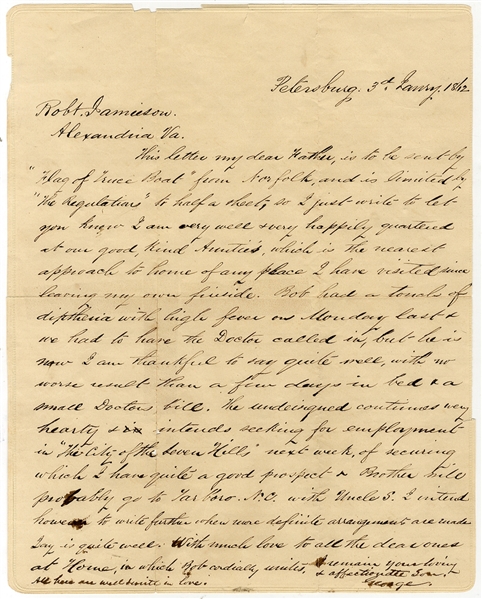 Petersburg. 3d Janry. 1862
Robt. Jamieson.
Alexandria Va.
This letter my dear Father, is to be sent by
"Flag of Truce Boat" from Norfolk, and is limited by
"The Regulations" to half a sheet, so I just write to let
you know I am very well & very happily quartered
at our good, kind Aunties, which is the nearest
approach to home of any place I have visited since
leaving my own fireside. Bob had a touch of
diptheria with high fever on Monday last &
we had to have the Doctor called in, but he is
now I am thankful to say quite well, with no
worse result than a few days in bed & a
small Doctors bill. The undersigned continues very
hearty & intends seeking for employment
in "The City of the Seven Hills" next week, of securing
which I have quite a good prospect & Brother will
probably go to Tarboro. N.C. with Uncle S. I intend
however to write further when more definite arrangements are made
Jay is quite well. With much love to all the dear ones
at Home, in which Bob cordially unites, I remain your loving
& affectionate Son,
All here are well & unite in love.
George